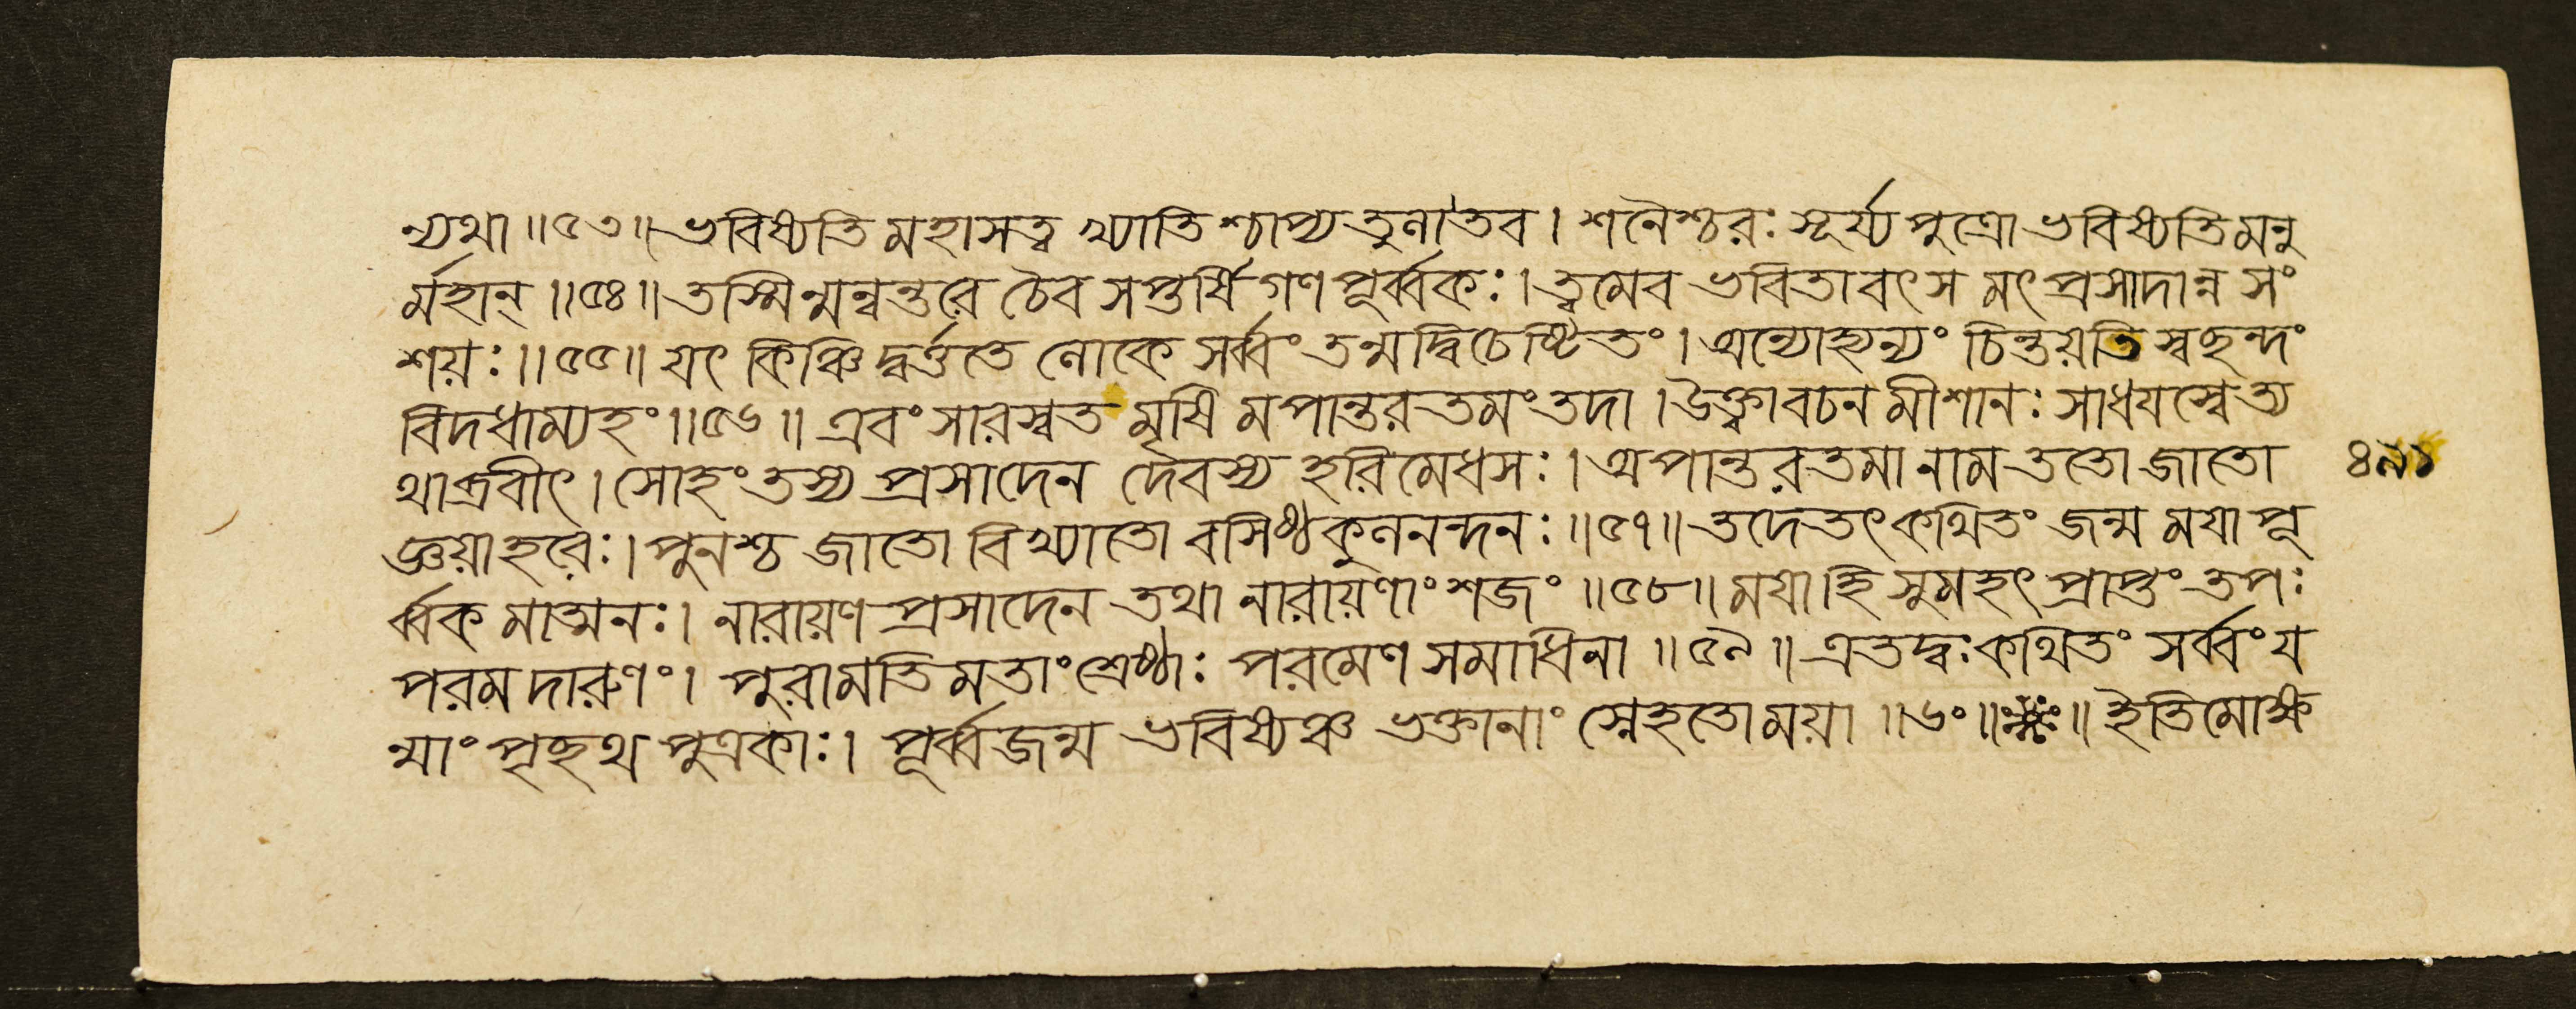 ন্যথা ॥৫৩॥ ভবিষ্যতি মহাসত্ব খ্যাতি শ্চাপ্য তুলা তব । শনৈশ্চরঃ সূর্য্য পুত্রো ভবিষ্যতি মনু
র্মহান্ ॥৫৪॥ তস্মিন্মন্বন্তরে চৈব সপ্তর্ষি গণ পূর্ব্বকঃ । ত্বমেব ভবিতা বৎস মৎপ্রসাদান্ন সং
শয়ঃ । ॥৫৫॥ যৎ কিঞ্চিদ্বর্ত্ততে লোকে সর্ব্বং তন্মদ্বিচেষ্টিতং । অন্যোহ্যন্যং চিন্তয়তি স্বছন্দং
বিদধাম্যহং ॥৫৬॥ এবং সারস্বত মৃষি মপান্তরতমং তদা । উক্ত্বা বচন মীশানঃ সাধযস্বেত্য
থাব্রবীৎ । সোহং তস্য প্রসাদেন দেবস্য হরিমেধসঃ । অপান্তরতমা নাম ততো জাতো
জ্ঞয়া হরেঃ । পুনশ্চ জাতো বিখ্যাতো বসিষ্ঠকুলনন্দনঃ ॥৫৭॥ তদেতৎ কথিতং জন্ম ময়া পূ
র্ব্বক মাত্মনঃ । নারায়ণ প্রসাদেন তথা নারায়ণাংশজং ॥৫৮॥ ময়া হি সুমহৎ প্রাপ্তং তপঃ
পরম দারুণং । পুরা মতিমতাং শ্রেষ্ঠাঃ পরমেণ সমাধিনা ॥৫৯॥ এতদ্বঃ কথিতং সর্ব্বং য
ন্মাং পৃছথ পুত্রকাঃ । পূর্ব্বজন্ম ভবিষ্যঞ্চ ভক্তানাং স্নেহতো ময়া ॥৬০॥ ॥ ইতি মোক্ষ
৪৯১